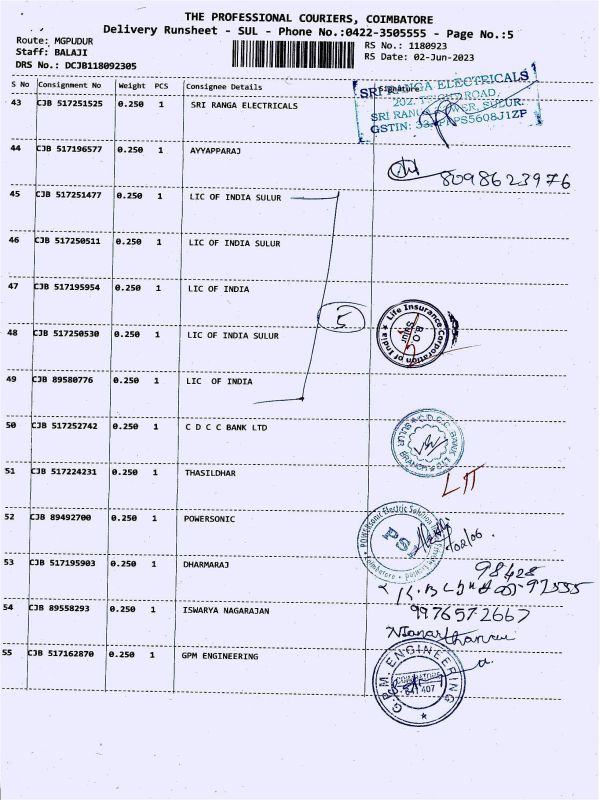 THE PROFESSIONAL COURIERS, COIMBATORE
Delivery Runsheet - SUL - Phone No.:0422-3505555 - Page No.:5
Route: MGPUDUR
Staff: BALAJI
DRS No.: DCJB118092305
RS No.: 1180923
RS Date: 02-Jun-2023
S No Consignment No Weight PCS Consignee Details Signature
43 CJB 517251525 0.250 1 SRI RANGA ELECTRICALS
SRI RANGA ELECTRICALS
202, ROAD,
SRI RANGA TOWER, SULUR.
GSTIN:
44 CJB 517196577 0.250 1 AYYAPPARAJ
8098623976
45 CJB 517251477 0.250 1 LIC OF INDIA SULUR
46 CJB 517250511 0.250 1 LIC OF INDIA SULUR
47 CJB 517195954 0.250 1 LIC OF INDIA
5
Life Insurance Corporation of India
B.O.
Sulur
48 CJB 517250530 0.250 1 LIC OF INDIA SULUR
49 CJB 89580776 0.250 1 LIC OF INDIA
50 CJB 517252742 0.250 1 C D C C BANK LTD
C.D.C.C. BANK
SULUR BRANCH
51 CJB 517224231 0.250 1 THASILDHAR
52 CJB 89492700 0.250 1 POWERSONIC
POWERsonic Electric Solution Private Limited
Coimbatore
PS
53 CJB 517195903 0.250 1 DHARMARAJ
98428
92555
54 CJB 89558293 0.250 1 ISWARYA NAGARAJAN
9976572667
55 CJB 517162870 0.250 1 GPM ENGINEERING
G.P.M. ENGINEERING
COIMBATORE
641 407